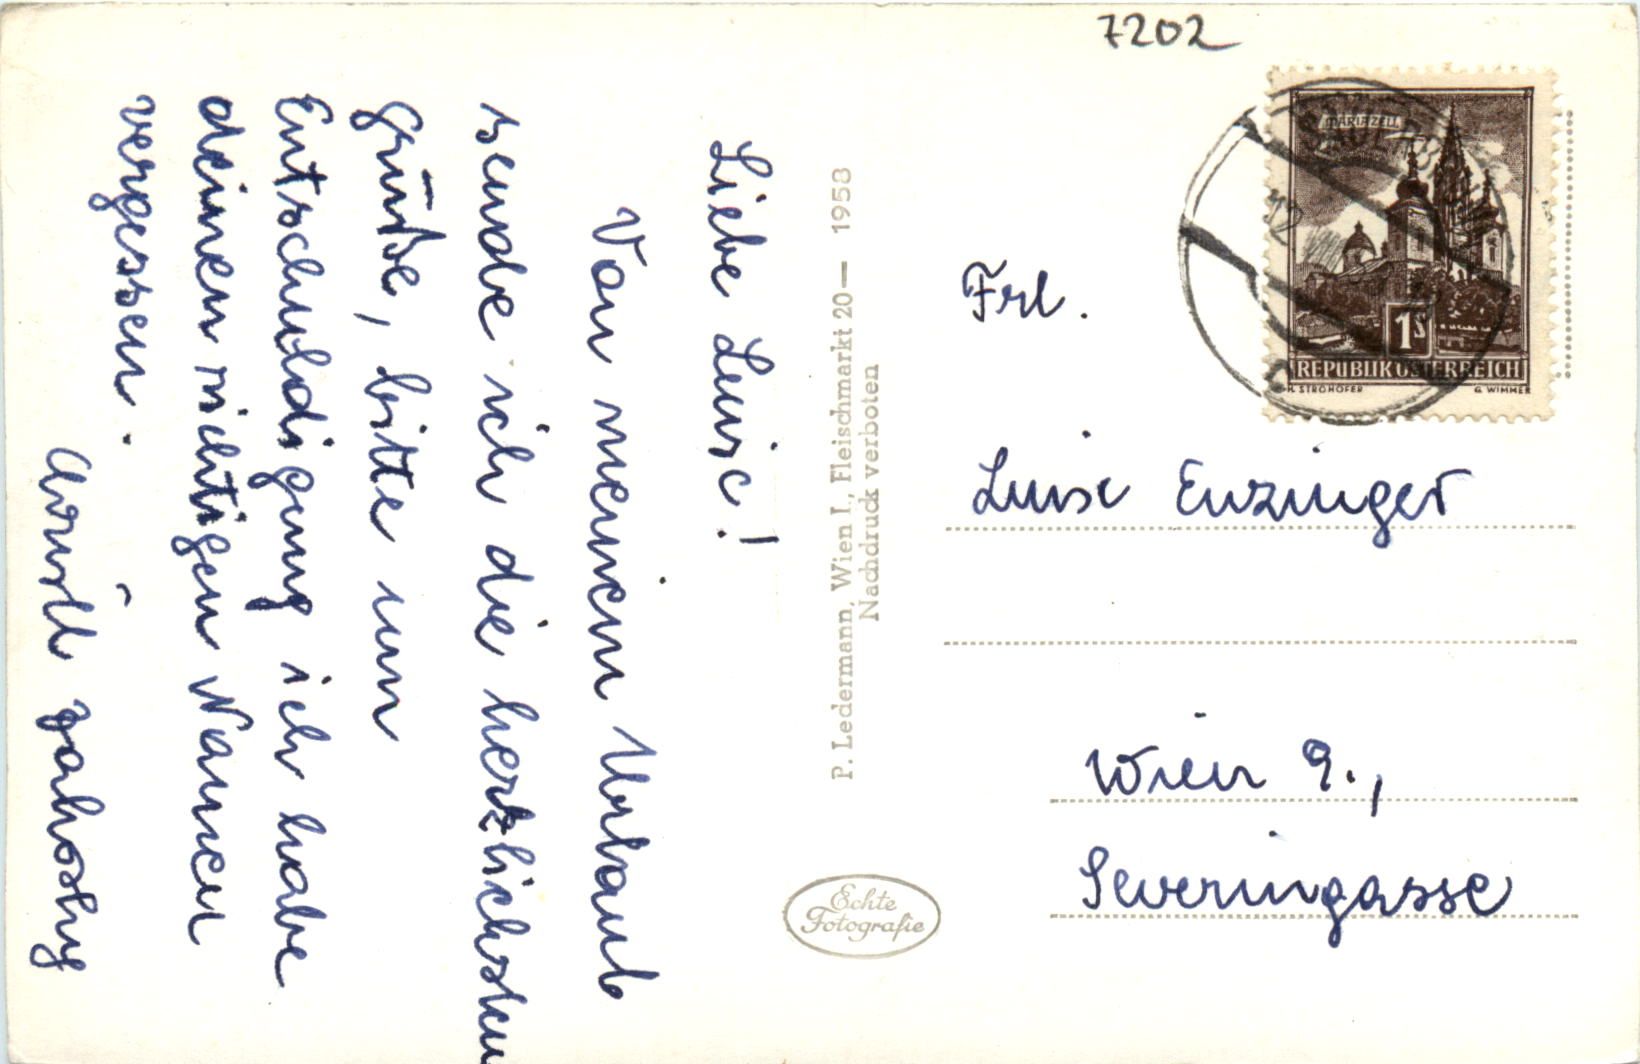 7202
Liebe Luise!
Von meinem Urlaub
sende ich die herzlichsten
Grüße, bitte um
Entschuldigung ich habe
deinen richtigen Namen
vergessen.
P. Ledermann, Wien I., Fleischmarkt 20— 1958
Nachdruck verboten
Echte
Fotografie
MARIAZELL
1S
REPUBLIK ÖSTERREICH
H. STROHOFER G. WIMMER
12
Frl.
Luise Enzinger
Wien 9.,
Severingasse